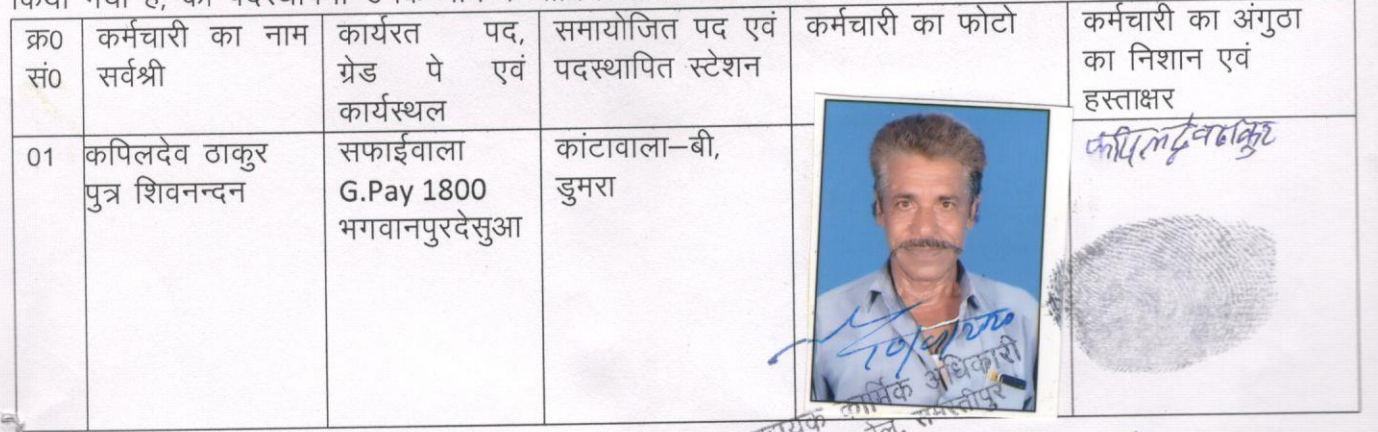 किया गया है, की पदस्थापना उनके नाम के
क्र0 सं0
कर्मचारी का नाम सर्वश्री
कार्यरत पद, ग्रेड पे एवं कार्यस्थल
समायोजित पद एवं पदस्थापित स्टेशन
कर्मचारी का फोटो
कर्मचारी का अंगुठा का निशान एवं हस्ताक्षर
01
कपिलदेव ठाकुर
पुत्र शिवनन्दन
सफाईवाला
G.Pay 1800
भगवानपुरदेसुआ
कांटावाला–बी,
डुमरा
कपिलदेव ठाकुर
कार्मिक अधिकारी
रेल, समस्तीपुर